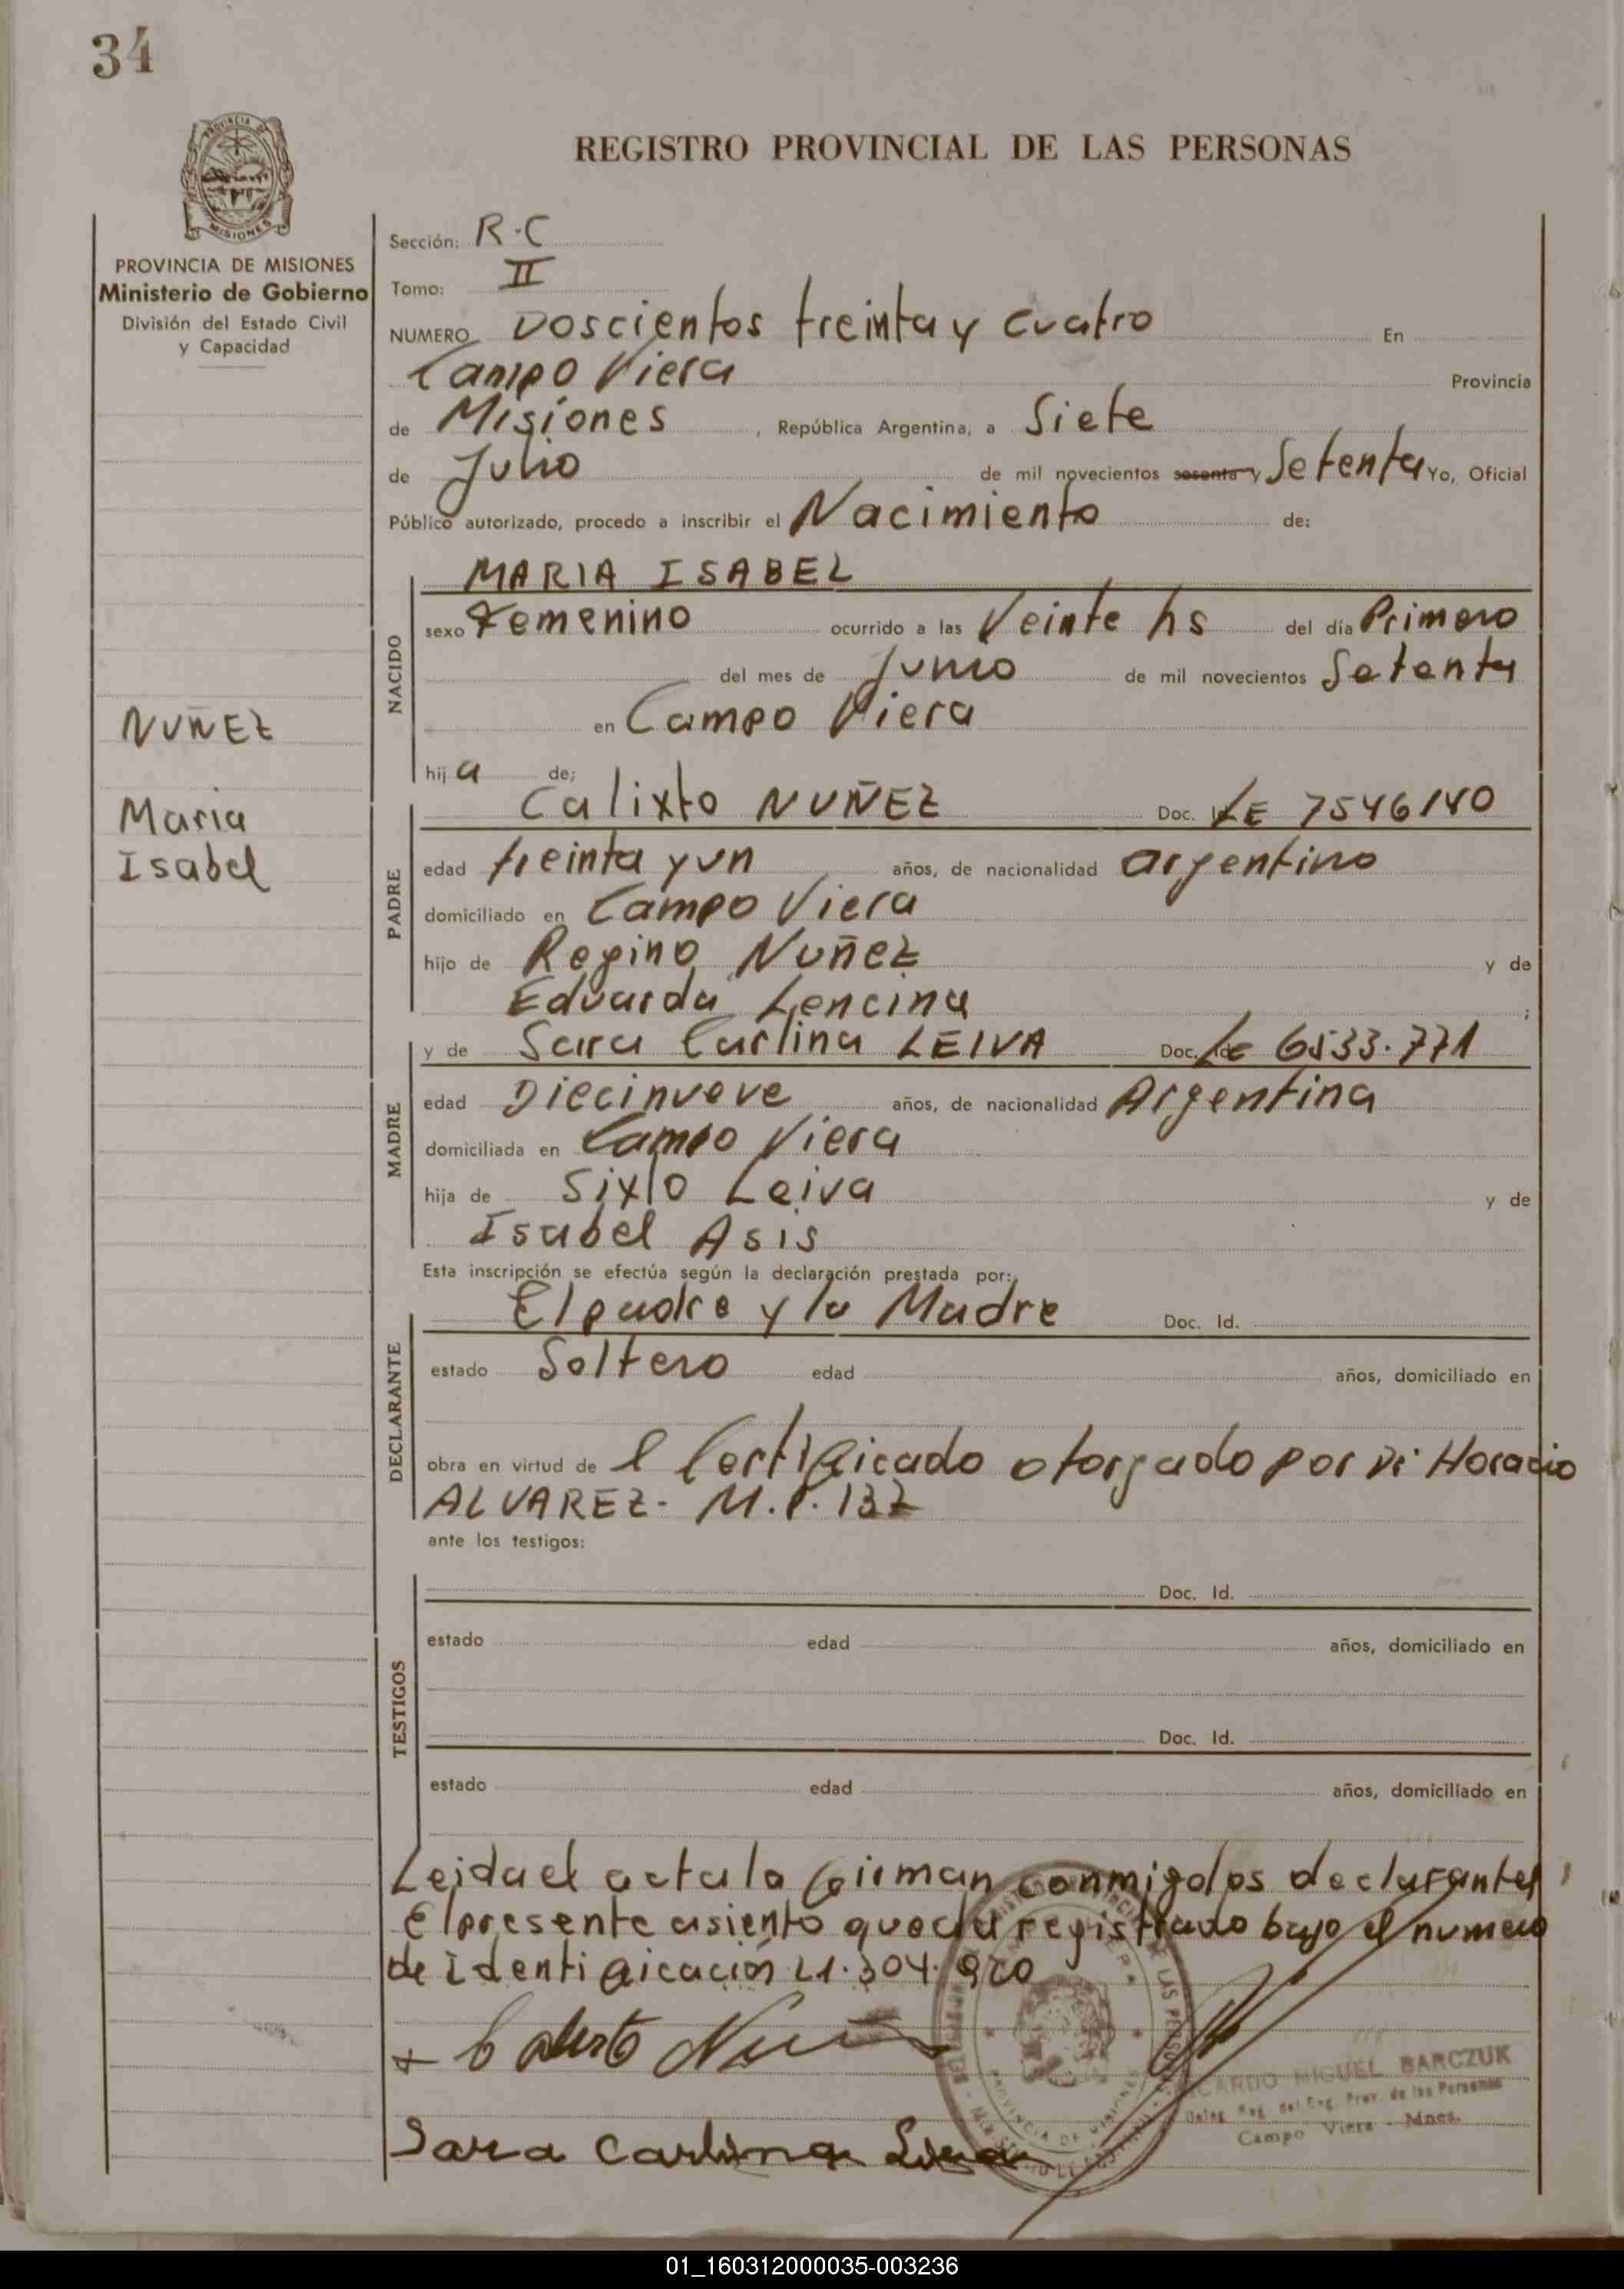 34
REGISTRO PROVINCIAL DE LAS PERSONAS
PROVINCIA DE MISIONES
Ministerio de Gobierno
División del Estado Civil
y Capacidad
Sección: R.C
Tomo: II
NUMERO Doscientos treinta y cuatro En
Campo Viera Provincia
de Misiones, República Argentina, a Siete
de Julio de mil novecientos sesenta y Setenta Yo, Oficial
Público autorizado, procedo a inscribir el Nacimiento de:
NACIDO
MARIA ISABEL
sexo Femenino ocurrido a las Veinte hs del día Primero
del mes de Junio de mil novecientos Setenta
en Campo Viera
hija de;
NUÑEZ
Maria
Isabel
PADRE
Calixto NUÑEZ Doc. LE 7546140
edad treinta y un años, de nacionalidad argentino
domiciliado en Campo Viera
hijo de Regino Nuñez y de
Eduarda Lencina ;
MADRE
y de Sara Carlina LEIVA Doc. Lc 6533.771
edad Diecinueve años, de nacionalidad Argentina
domiciliada en Campo Viera
hija de Sixto Leiva y de
Isabel Asis
Esta inscripción se efectúa según la declaración prestada por:
DECLARANTE
El padre y la Madre Doc. Id.
estado Soltero edad años, domiciliado en
obra en virtud de l Certificado otorgado por Dr Horacio
ALVAREZ- M.P. 132
ante los testigos:
TESTIGOS
Doc. Id.
estado edad años, domiciliado en
Doc. Id.
estado edad años, domiciliado en
Leida el acta la firman conmigo los declarantes
El presente asiento queda registrado bajo el numero
de identificación 21.304.920
Sara Carlina
PROVINCIA DE MISIONES
RICARDO MIGUEL BARCZUK
Campo Viera - Mnes.
01_160312000035-003236